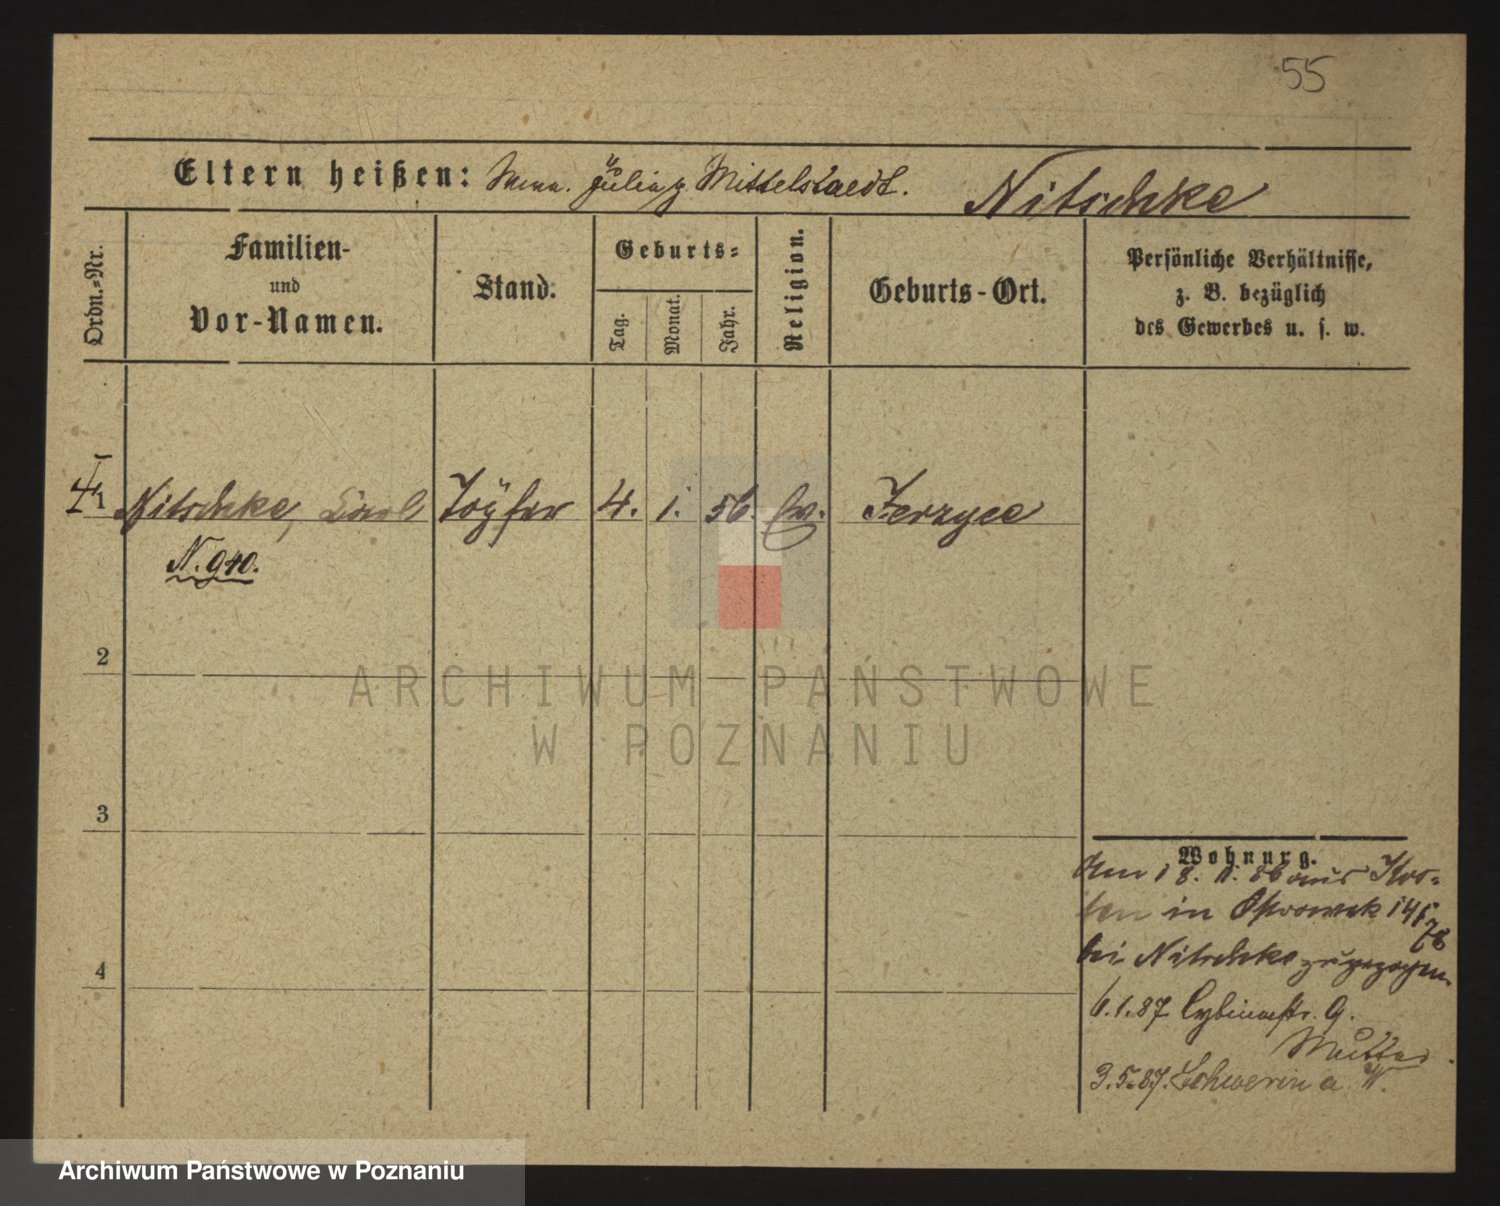 55
Eltern heißen: u. Julia g. Mittelstaedt. Nitschke
Ordn.-Nr.
Familien-
und
Vor-Namen.
Stand.
Geburts-
Tag.
Monat.
Jahr.
Religion.
Geburts-Ort.
Persönliche Verhältnisse,
z. B. bezüglich
des Gewerbes u. s. w.
I
1 Nitschke, Carl Töpfer 4. 1. 56. Ev. Jerzyce
N. 940.
2
3
4
Wohnung.
Am 18. 11. 86 aus Kos-
ten in Ostrowek 14/
bei Nitschke zugezogen.
6.1.87 Cybinastr. 9.
Mutter.
3.5.87. Schwerin a. W.
ARCHIWUM PAŃSTWOWE
W POZNANIU
Archiwum Państwowe w Poznaniu